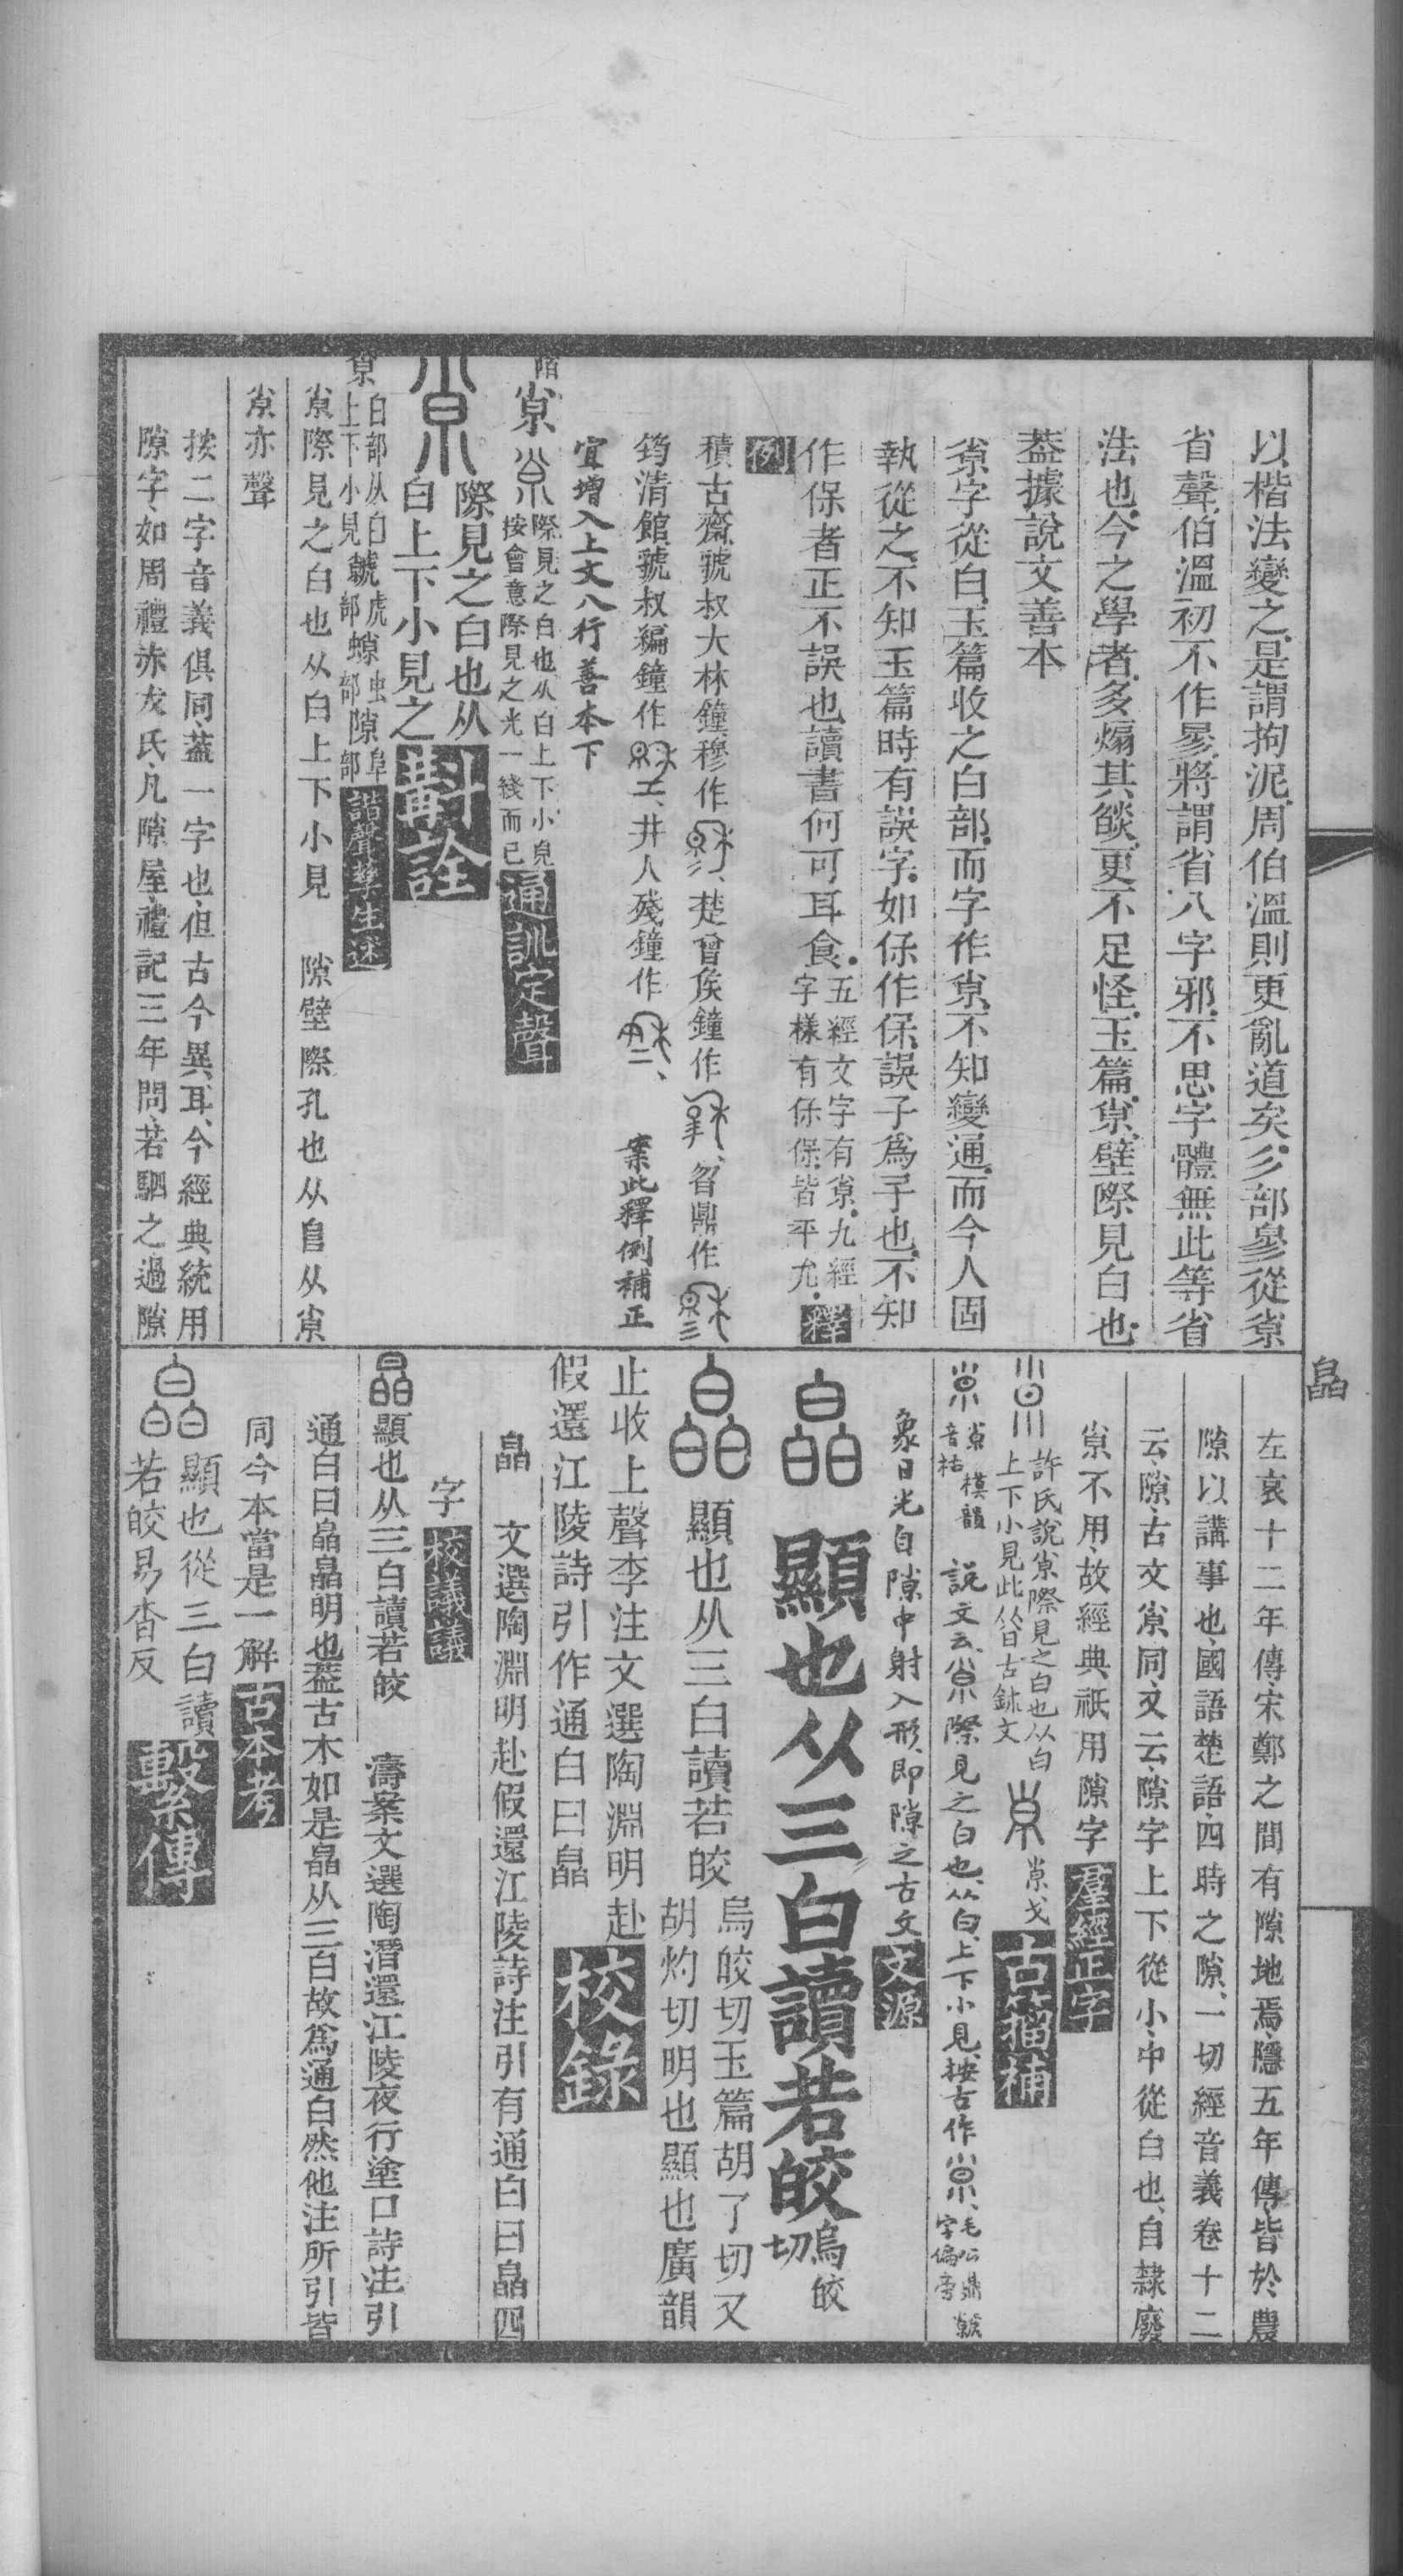 以楷法變之是謂拘泥周伯溫則更亂道矣彡部㣎從𡭴
省聲伯溫初不作㣎將謂省八字邪不思字體無此等省
法也今之學者多煽其燄更不足怪玉篇𡭴壁際見白也
蓋據說文善本
𡭴字從白玉篇收之白部而字作𡭴不知變通而今人固
執從之不知玉篇時有誤字如保作保誤子爲子也不知
作保者正不誤也讀書何可耳食五經文字有𡭴九經
字樣有保保皆平允釋
例
積古齋虢叔大林鐘穆作、楚曾侯鐘作、曶鼎作
筠清館虢叔編鐘作、井人殘鐘作、案此釋例補正
宜增入上文八行善本下
𡭴際見之白也从白上下小見
按會意際見之光一綫而已通訓定聲
際見之白也从
白上下小見之斠詮
𡭴白部从白
上下小見虩虎部螑虫部隙阜部諧聲孳生述
𡭴際見之白也从白上下小見 隙壁際孔也从𨸏从𡭴
𡭴亦聲
按二字音義俱同蓋一字也但古今異耳今經典統用
隙字如周禮赤犮氏凡隙屋禮記三年問若駟之過隙
皛
左哀十二年傳宋鄭之間有隙地焉隱五年傳皆於農
隙以講事也國語楚語四時之隙一切經音義卷十二
云隙古文𡭴同文云隙字上下從小中從白也自隸廢
𡭴不用故經典祇用隙字羣經正字
許氏說𡭴際見之白也从白
上下小見此从日古鉥文 𡭴戈古籀補
𡭴音枯模韻 說文云𡭴際見之白也从白上下小見按古作𡭴毛公鼎虩字偏旁
象日光自隙中射入形卽隙之古文文源
皛 顯也从三白讀若皎烏皎切
皛 顯也从三白讀若皎 烏皎切玉篇胡了切又
胡灼切明也顯也廣韻
止收上聲李注文選陶淵明赴
假還江陵詩引作通白曰皛校錄
皛 文選陶淵明赴假還江陵詩注引有通白曰皛四
字校議議
皛顯也从三白讀若皎 濤案文選陶潛還江陵夜行塗口詩注引
通白曰皛皛明也蓋古本如是皛从三白故爲通白然他注所引皆
同今本當是一解古本考
皛 顯也從三白讀
若皎易杳反繫傳